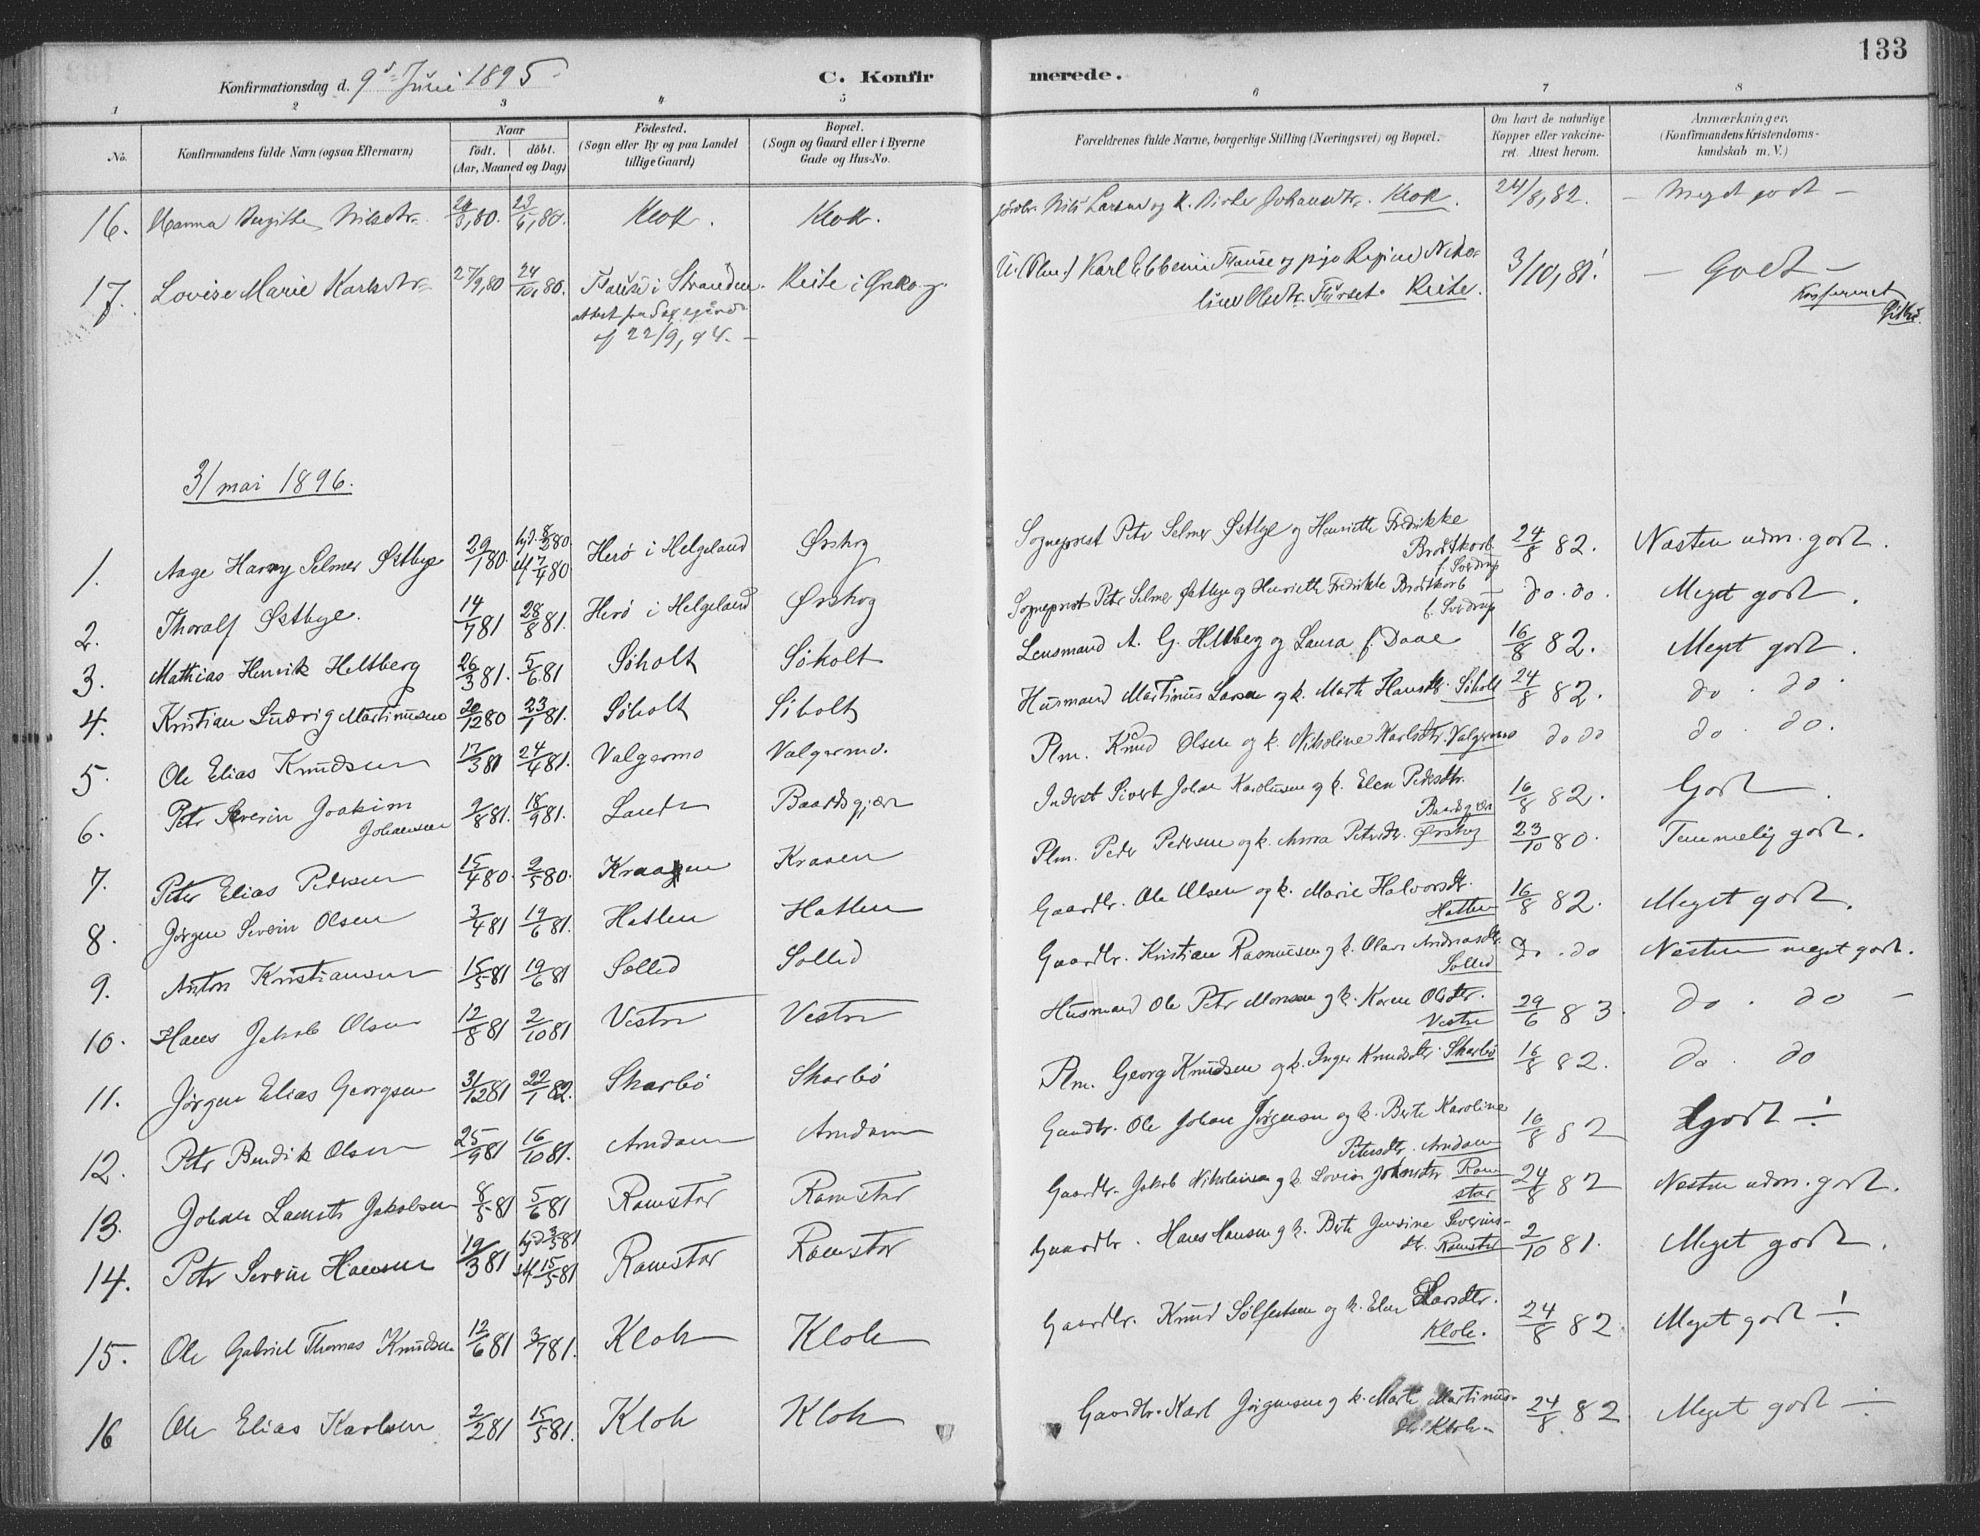 133
Konfirmationsdag d. 9de Juni 1895
C. Konfirmerede.
1 2 3 4 5 6 7 8
No. Konfirmandens fulde Navn (ogsaa Efternavn) Naar födt. döbt. (Aar, Maaned og Dag) Födested. (Sogn eller By og paa Landet tillige Gaard) Bopæl. (Sogn og Gaard eller i Byerne Gade og Hus-No. Forældrenes fulde Navne, borgerlige Stilling (Næringsvei) og Bopæl. Om havt de naturlige Kopper eller vakcineret. Attest herom. Anmærkninger. (Konfirmandens Kristendomskundskab m. V.)
16. Hanna Bergitte Nilsdtr. Klok. Klok. Nils Larsen og k. Johansdtr. Klok. 24/8,82. – Meget godt –
17. Lovise Marie Karlsdtr. 27/9,80 24/10,80. i Stranden. Reite i Ørskog. Karl Ebbesen og pige Regine Niko-
line Olsdtr. Reite. 3/10,81. – Godt –
attest fra
af 22/9, 94. –
Konfirmeret
31 mai 1896.
1. Aage Harry Selmer Østbye 29/1 80. hjd. 8/2 80 7/4 80 Herö i Helgeland Ørskog Sogneprest Peter Selmer Østbye og Henriette Fredrikke
Brodtkorb
f. Sverdrup 24/8 82. Næsten udm. godt.
2. Thoralf Østbye. 14/7 81 28/8 81. Herö i Helgeland Ørskog Sogneprest Peter Selmer Østbye og Henriette Fredrikke Brodtkorb
f. Sverdrup do. do. Meget godt.
3. Mathias Henrik Heltberg 26/3 81. 5/6 81 Söholt Söholt Lensmand A. G. Heltberg og Laura f. Daae 16/8 82. Meget godt.
4. Kristian Ludvig Martinusen 20/12 80 23/1 81. Söholt Söholt Husmand Martinus Larsen og k. Marte Hansdtr. Söholt 24/8 82. do. do.
5. Ole Elias Knudsen 17/3 81 24/4 81. Valgermo Valgermo. Plm. Knud Olsen og k. Nikoline Karlsdtr. Valgermo do do do. do.
6. Peter Severin Joakim
Johansen 2/8 81. 18/9 81. Lande Baardsgjær Inderst Sivert Johan Karolusen og k. Elen Pedersdtr.
Baardsgjær 16/8 82. Godt.
7. Peter Elias Pedersen 15/4 80. 2/5 80. Kraagen Kraaen Plm. Peder Pedersen og k. Anna Petersdtr. Ørskog 23/10 80. Temmelig godt.
8. Jörgen Severin Olsen 3/4 81 19/6 81. Hatlen Hatlen Gaardbr. Ole Olsen og k. Marie Halvorsdtr.
Hatlen 16/8 82. Meget godt.
9. Anton Kristiansen 15/5 81 19/6 81 Solled Solled Gaardbr. Kristian Rasmussen og k. Olave Andreasdtr.
Solled do. do Næsten meget godt.
10. Hans Jakob Olsen 12/8 81 2/10 81 Vestre Vestre Husmand Ole Peter Monsen og k. Karen Olsdtr.
Vestre 29/6 83. do. do –
11. Jörgen Elias Georgsen 31/12 81 22/1 82. Skarbö Skarbö Plm. Georg Knudsen og k. Inger Knudsdtr. Skarbö 16/8 82. do. do
12. Peter Bendik Olsen 25/9 81 16/10 81. Amdam Amdam Gaardbr. Ole Johan Jörgensen og k. Berte Karoline
Petersdtr. Amdam 16/8 82 godt ÷
13. Johan Laurits Jakobsen 8/5 81 5/6 81 Ramstar Ramstar Gaardbr. Jakob Nikolaisen og k. Lovise Johansdtr. Ram-
star 24/8 82 Næsten udm. godt.
14. Peter Severin Hansen 19/3 81 hjd 3/5 81 15/5 81 Ramstar Ramstar Gaardbr. Hans Hansen og k. Berte Jensine Severins-
dtr. Ramstar 2/10 81. Meget godt.
15. Ole Gabriel Thomas Knudsen 12/6 81 3/7 81. Kloh Kloh Gaardbr. Knud Sölfestsen og k. Elen Larsdtr.
Kloh. 24/8 82. Meget godt ÷
16 Ole Elias Karlsen 2/2 81 15/5 81. Kloh Kloh Gaardbr. Karl Jörgensen og k. Marte Martinus-
dtr. Kloh. 24/8 82. Meget godt ÷